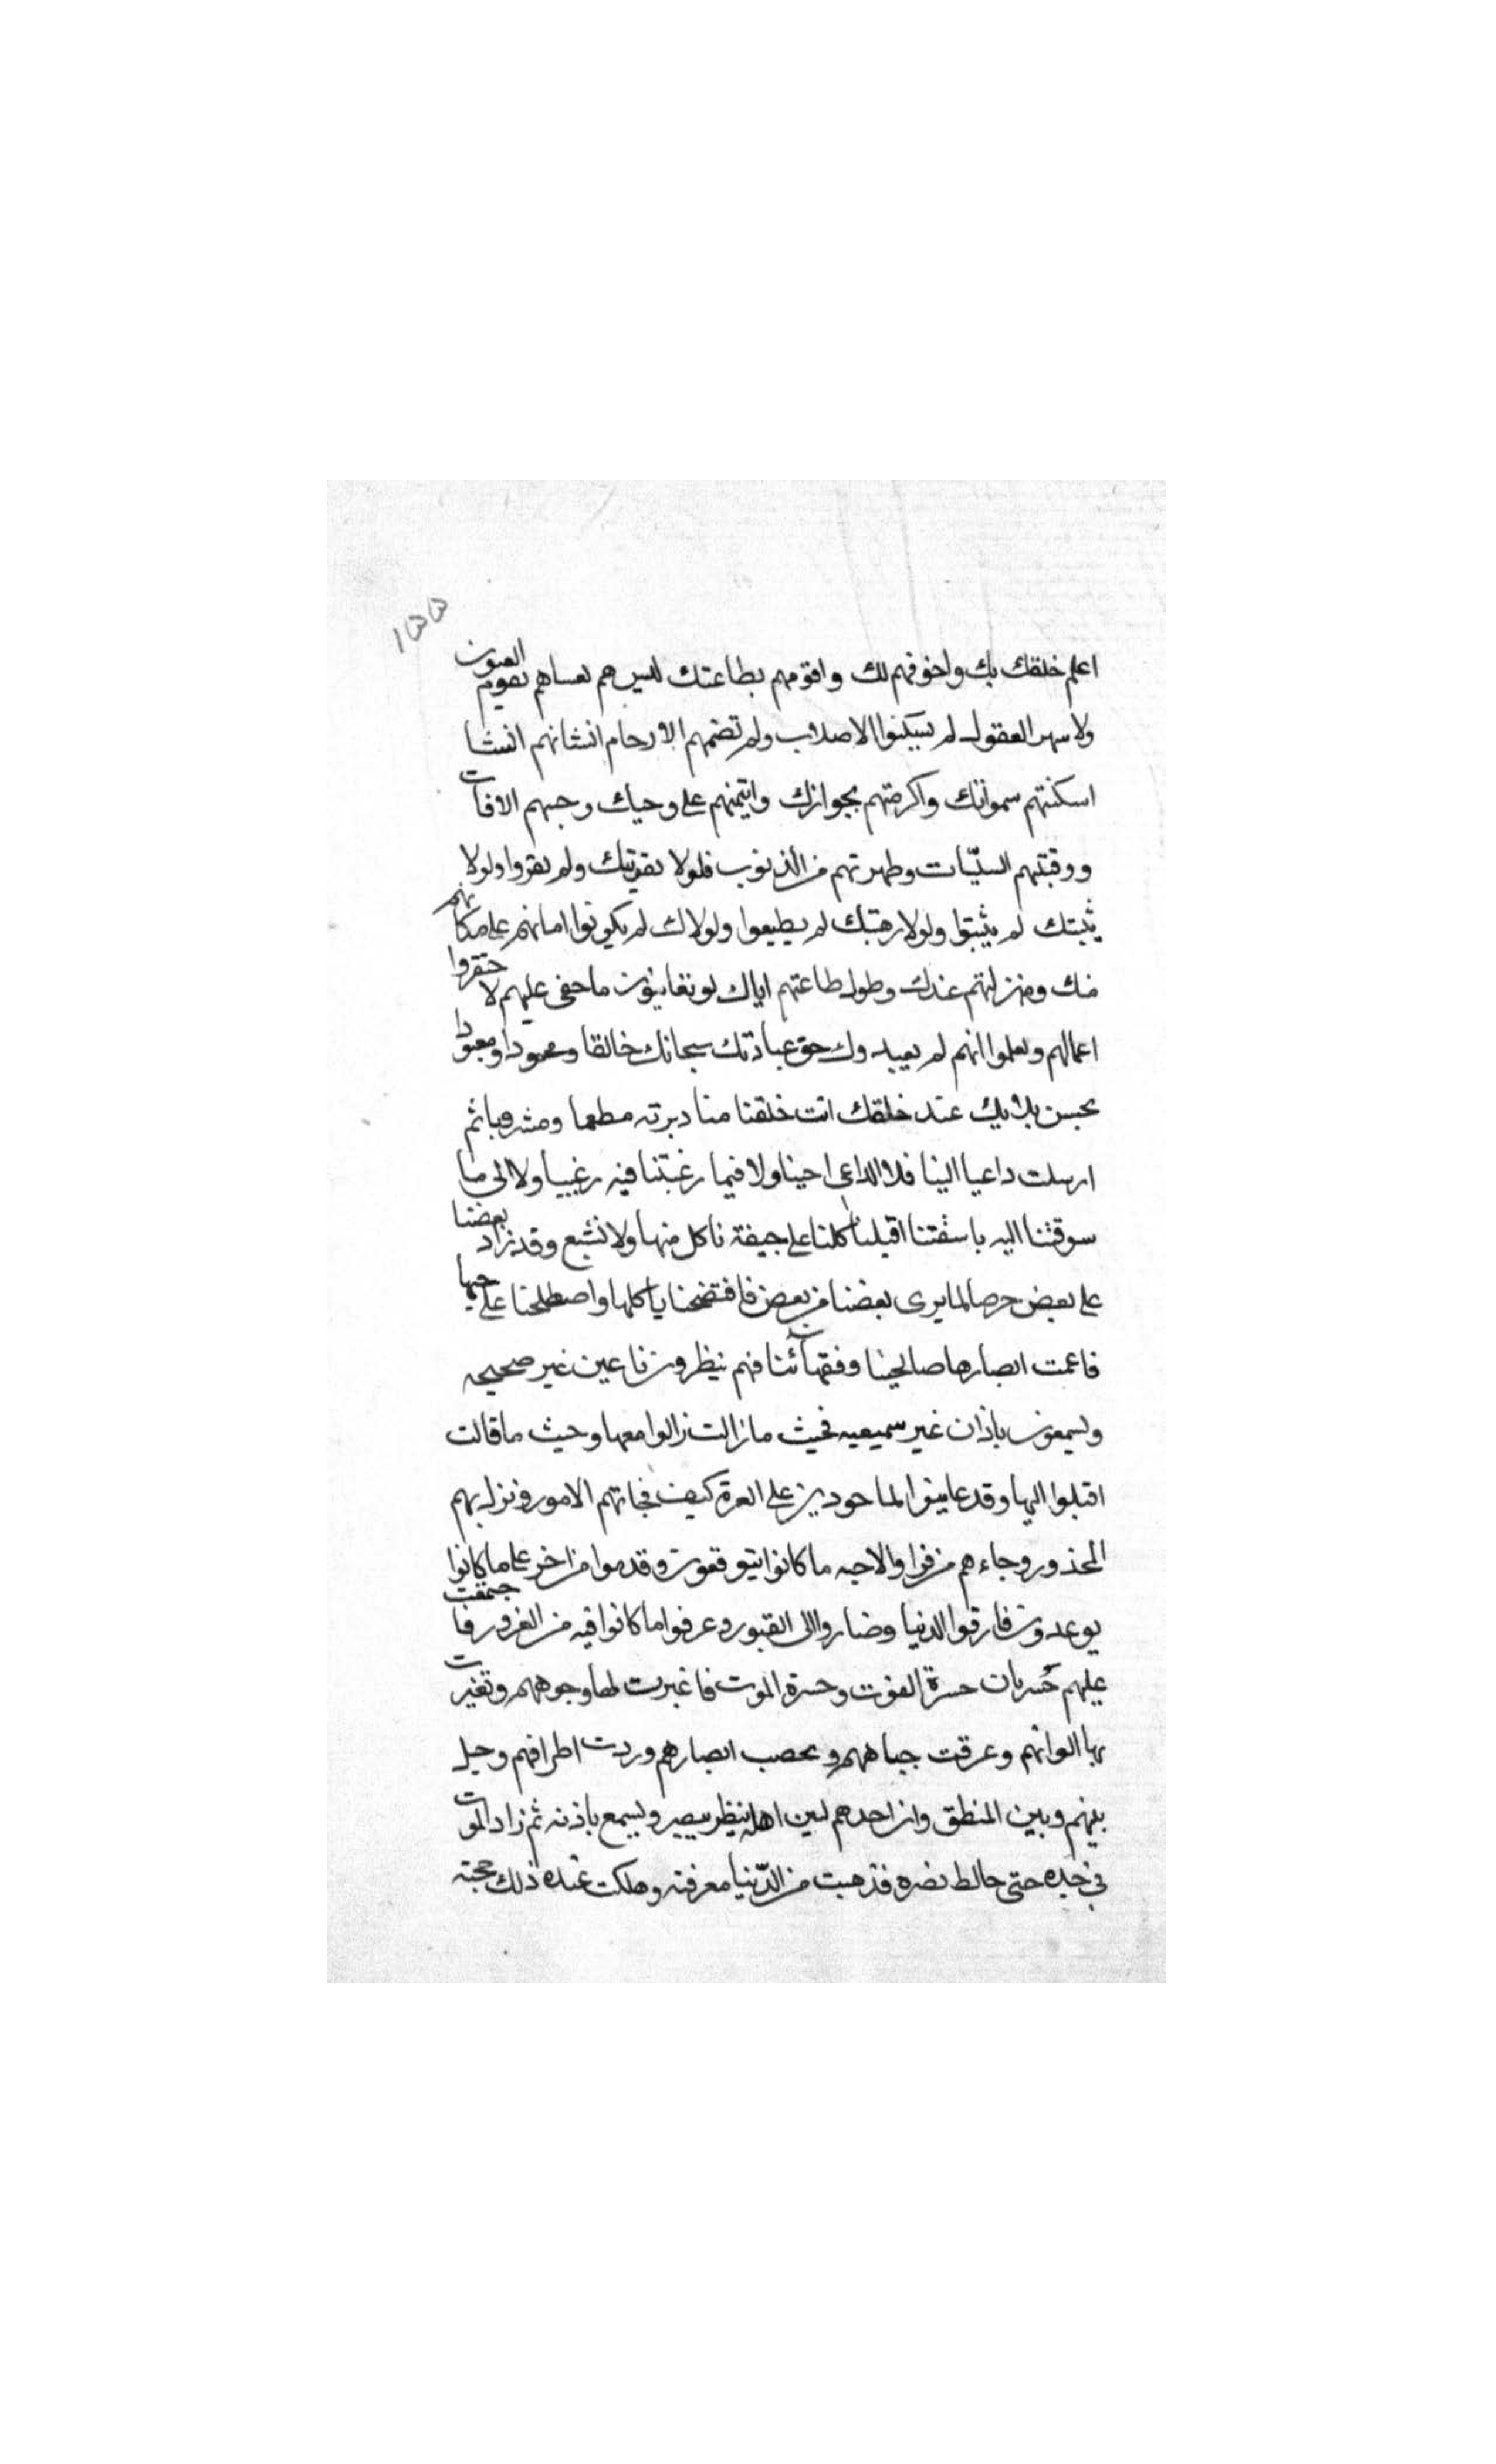 ١٥٥
اعلم خلقك بك واخوفهم لك واقومهم بطاعتك ليس هم يغساهم نوم العيون
ولا سهو العقول لم يسكنوا الاصلاب ولم تضمهم الارحام انشانهم انشا
اسكنتهم سمواتك واكرمتهم بجوارك وايتمنهم على وحيك وجبهم الافات
ووقيتهم السيّات وطهرتهم من الذنوب فلولا تقويتك ولم يقووا ولولا
يثبتك لم يثبتوا ولولا رهبتك لم يطيعوا ولولاك لم يكونوا اما انهم على مكانهم
منك ومنزلتهم عندك وطول طاعتهم اياك لو يعاينون ما خفى عليهم لاحتقروا
اعمالهم ولعلموا انهم لم يعبدوك حق عبادتك سبحانك خالقا ومحمودا ومعبودا
بحسن بلايك عند خلقك انت خلقنا منا دبرته مطعما ومشروبا ثم
ارسلت داعيا الينا فلا الداعى اجبنا ولا فيما رغبتنا فيه رغبيا ولا الى ما
سوقتنا اليه باشفتنا اقبلنا كلنا على جيفة ناكل منها ولا نشبع وقد زاد بعضنا
على بعض حرصا لما يرى بعضنا من بعض فافتضحنا باكلها واصطلحنا على حبها
فاعمت ابصارها صالحينا وفقهآئنا فهم ينظرون باعين غير صحيحه
ويسمعون باذان غير سميعيه فحيث ما زالت زالوا معها وحيث ما قالت
اقبلوا اليها وقد عاينوا الماحودين على العرة كيف فجاتهم الامور ونزل بهم
المحذور وجاءهم من فرا والاحبه ما كانوا يتوقعون وقدموا من اخر على ما كانوا
يوعدون فارقوا الدنيا وضاروا الى القبور وعرفوا ما كانوا فيه من الغرور فاجتمعت
عليهم حُسرتان حسرة الفوت وحسرة الموت فاغبرت لها وجوههم وتغيرت
بها الوانهم وعرقت جباههم وعحصب ابصارهم وردت اطرافهم وحيل
بينهم وبين المنطق وان احدهم لبين اهله ينظر ببصر ويسمع باذنه ثم زاد الموت
فى جده حتى حالط بصره فذهبت من الدّنيا معرفته وهلكت عنده ذلك حجته